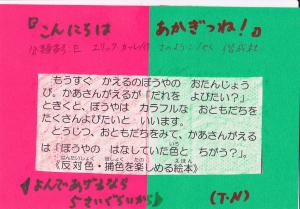 『こんにちは あかぎつね!』
分類番号 E エリック・カール作 さのようこ/やく 偕成社
もうすぐ かえるのぼうやの おたんじょう
び。かあさんがえるが「だれを よびたい?」
ときくと、ぼうやは カラフルな おともだちを
たくさんよびたいと いいます。
とうじつ、おともだちをみて、かあさんがえる
は「ぼうやの はなしていた色と ちがう?」。
《反対色・捕色を楽しめる絵本》
よんであげるなら
5さいぐらいから
(T・N)